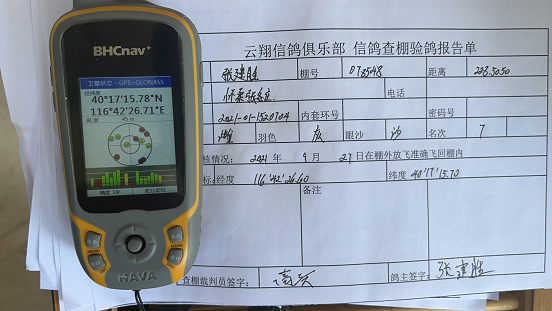 BHCnav+
卫星状态 - GPS+GLONASS
经纬度
40°17'15.78"N
116°42'26.71"E
45 m
精度:3米
差分定位
MENU
MARK
NAVA
云翔信鸽俱乐部 信鸽查棚验鸽报告单
张建胜 棚号 距离
电话
2021-01-1520704 内套环号 密码号
雌 羽色 灰 眼沙 沙 名次 7
核情况: 2021 年 9 月 27 日在棚外放飞准确飞回棚内
标:经度 116°42'26.60 纬度 40°17'15.70
备注
查棚裁判员签字:
鸽主签字: 张建胜